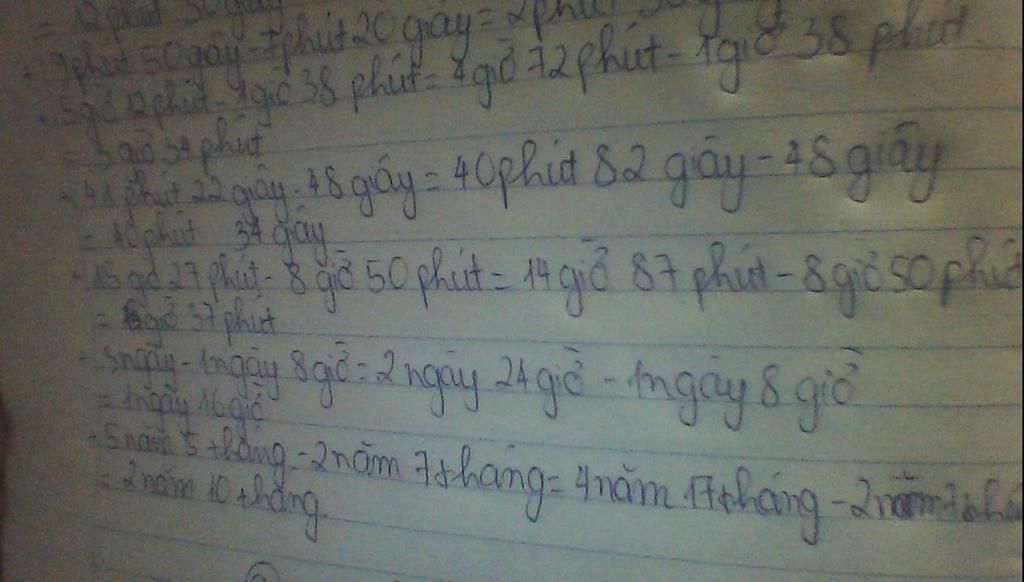 = 12 phút 30 giây
+ 9phút 50 gây - 7phút 20 giây = 2phút 30
+ 5giờ 12phút - 1giờ 38 phút = 4giờ 72phút - 1giờ 38 phút
= 3giờ 34phút
+ 41 phút 22 giây - 48 giây = 40phút 82 giây - 48 giây
= 40phút 34 gây
+ 15 gờ 27 phút - 8 giờ 50 phút = 14giờ 87 phút - 8giờ 50 phút
= 6giờ 37 phút
- 3ngày - 1ngày 8giờ = 2 ngày 24giờ - 1ngày 8 giờ
= 1ngày 16giờ
+ 5 năm 5 tháng - 2năm 7tháng = 4năm 17tháng - 2năm 7
= 2năm 10tháng.